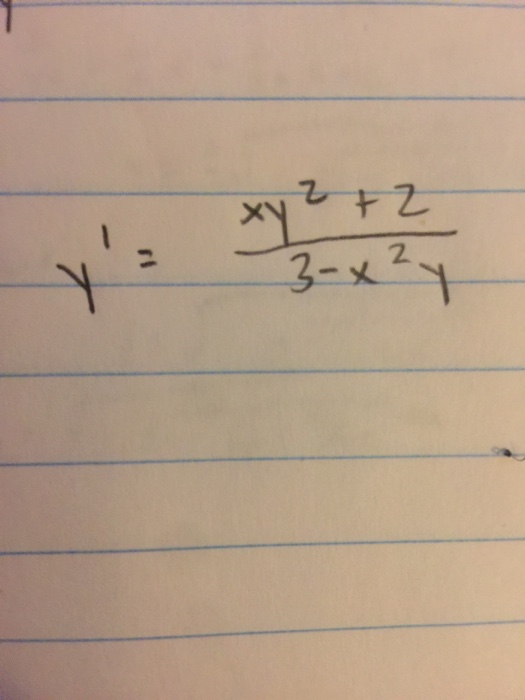 y' = \frac{xy^2 + 2}{3 - x^2y}